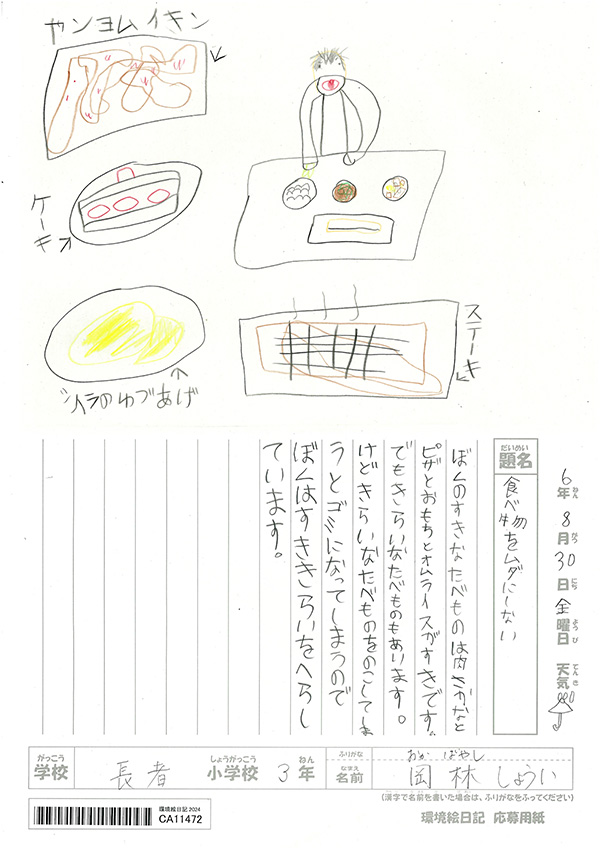 ヤンヨムイキン
ケーキ
シイラのゆづあげ
ステーキ
だいめい
題名
食べ物をムダにしない
6年 8月30日 金曜日 天気
ねん がつ にち ようび てんき
ぼくのすきなたべものは肉さかなと
ピザとおもちとオムライスがすきです。
でもきらいなたべものもあります。
けどきらいなたべものをのこしてしま
うとゴミになってしまうので
ぼくはすききらいをへらし
ています。
がっこう しょうがっこう ねん ふりがな おか ばやし
学校 長者 小学校 3年 なまえ 名前 岡林 しょうい
(漢字で名前を書いた場合は、ふりがなをふってください)
環境絵日記 2024
CA11472
環境絵日記 応募用紙